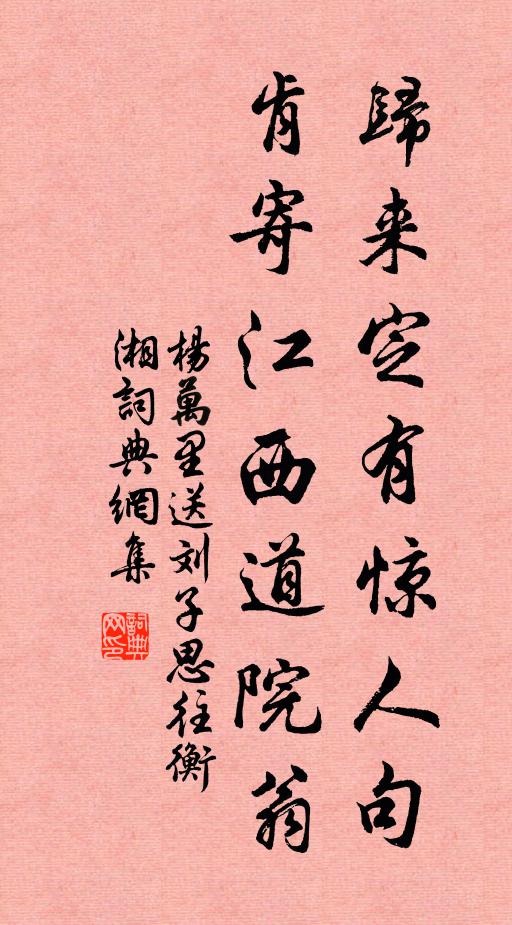 歸来定有惊人句
肯寄江西道院翁
楊萬里送刘子思往衡
湘詞典網集
詞典网印